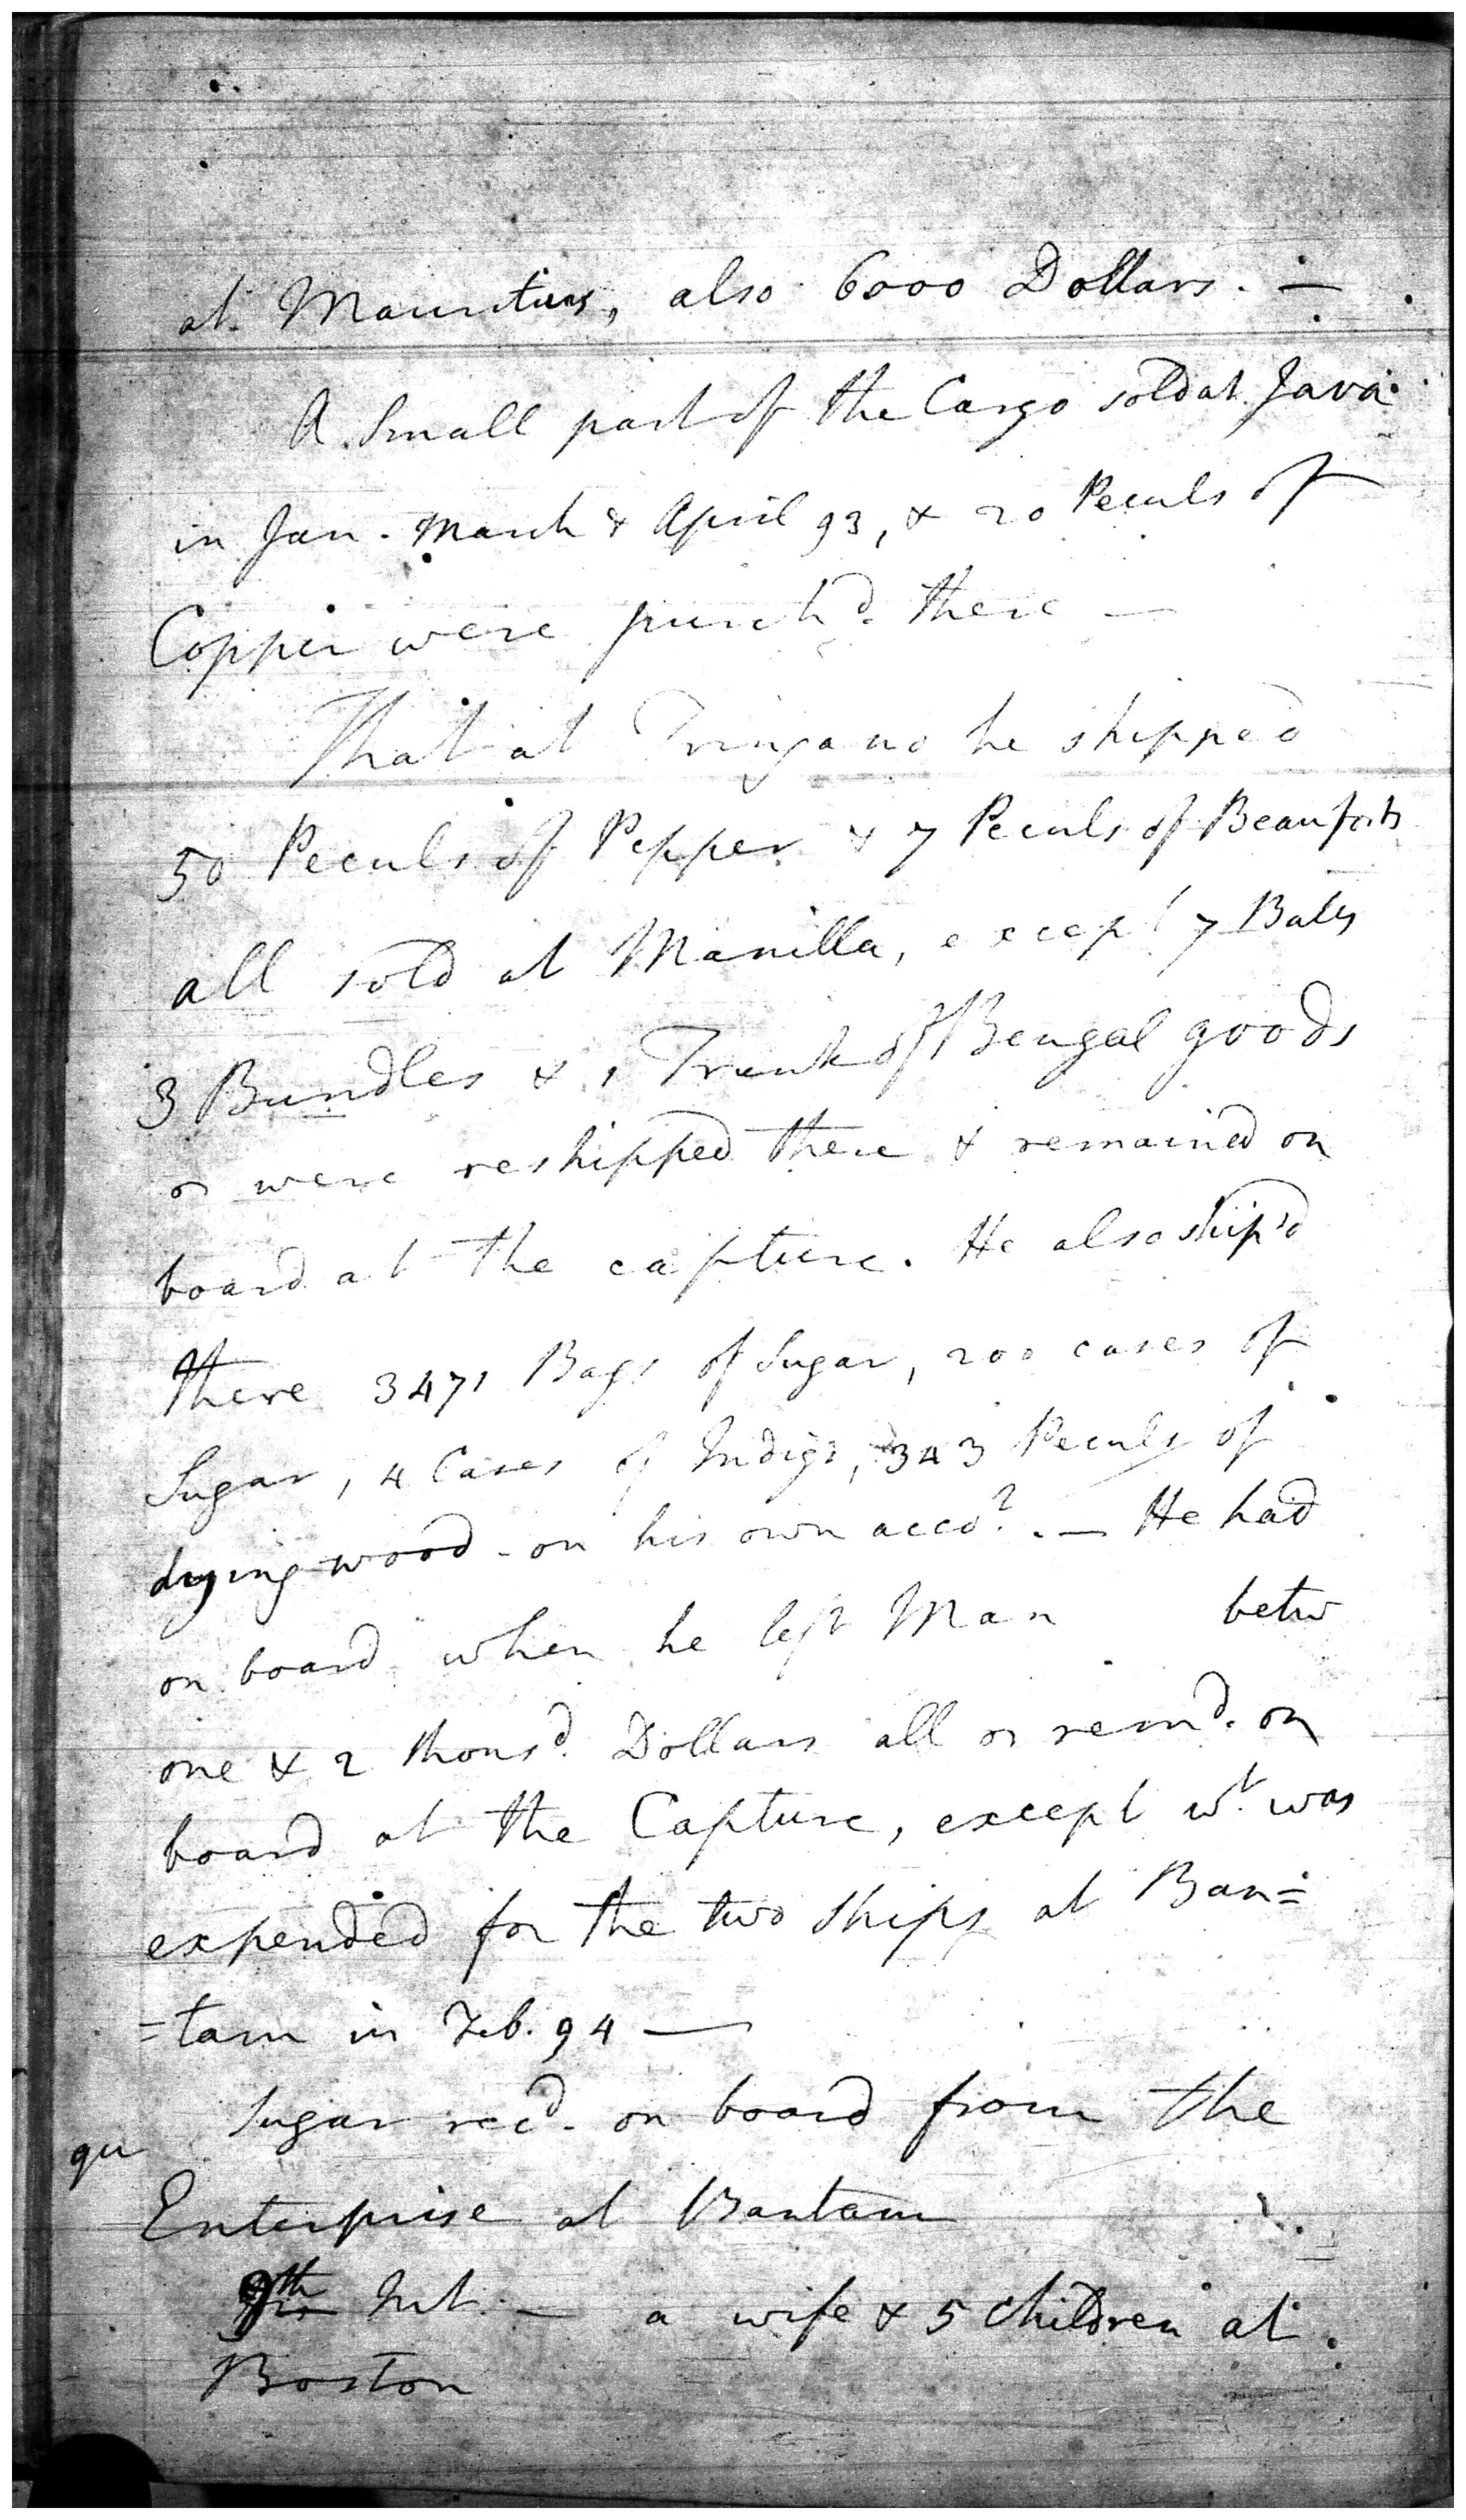 at Mauritius, also 6000 Dollars. —
A Small part of the Cargo sold at Java
in Jan. March & April 93, & 20 Peculs of
Copper were purch'd. there —
That at Tringano he shipped
50 Peculs of Pepper & 7 Peculs of
all sold at Manilla, except 7 Bales
3 Bundles & 1 Trunk of Bengal goods
were reshipped there & remained on
board at the capture. He also ship'd
there 3471 Bags of Sugar, 200 cases of
Sugar, 4 Cases of Indigo, 343 Peculs of
dying wood - on his own acco.t. — He had
on board when he left Man betw
one & 2 thous'd. Dollars all rem'd. on
board at the Capture, except w.t was
expended for the two Ships at Ban=
=tam in Feb. 94 —
qu Sugar rec'd. on board from the
Enterprise at Bantam
9th Int. — a wife & 5 children at
Boston